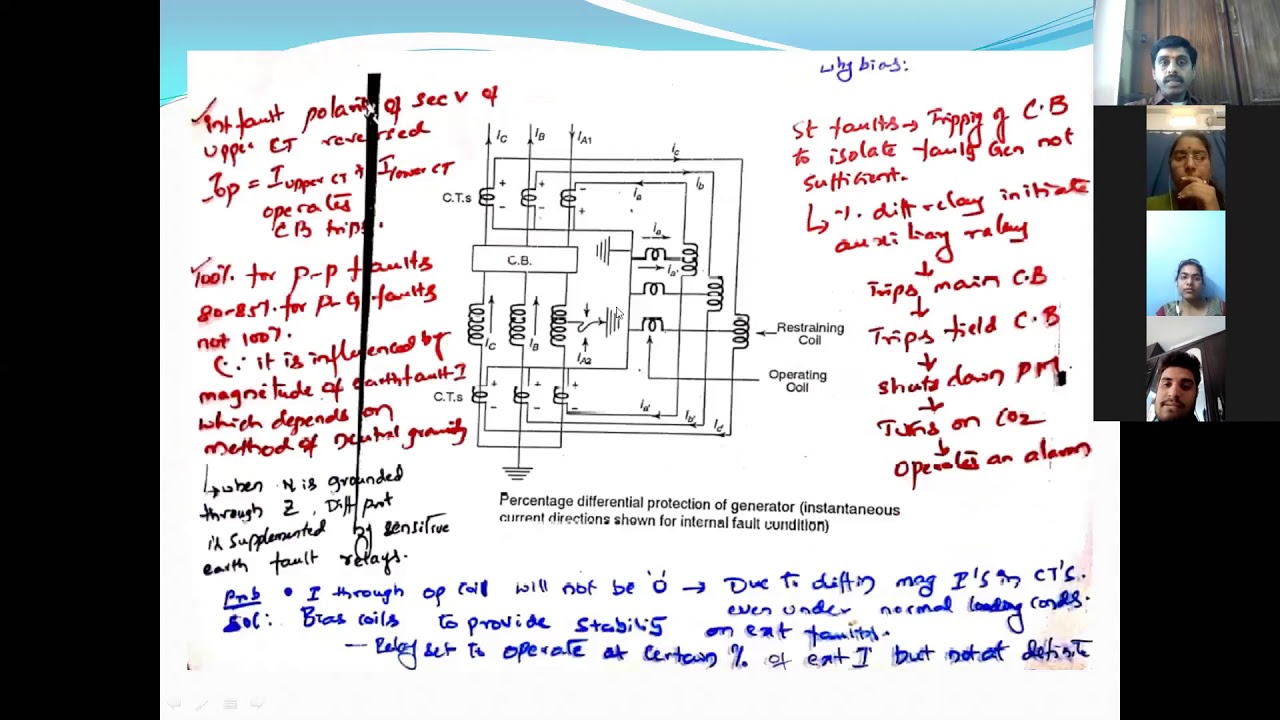 why bias:
✓int fault polarity of sec V of
upper CT reversed
Iop = I upper CT + I lower CT
operates
CB trips.
✓100% for P-P faults
80-85% for P-G faults
not 100%.
(∵ it is influenced by
magnitude of earth fault I
which depends on
method of neutral
↳ when N is grounded
through Z, Diff prot
is supplemented by sensitive
earth fault relays.
IC IB IA1
ic
ib
ia
C.T.s
+ + -
- - +
ia
ia'
C.B.
IC IB IA2
Restraining
Coil
Operating
Coil
C.T.s
+ + +
- - -
ia'
ib'
ic'
Percentage differential protection of generator (instantaneous
current directions shown for internal fault condition)
St faults → Tripping of C.B
to isolate faulty Gen not
sufficient.
↳ %. diff relay initiate
auxiliary relay
↓
Trips main C.B
↓
Trips field C.B
↓
shuts down PM
↓
Turns on CO2
↓
operates an alarm
Prob • I through op coil will not be '0' → Due to diff in mag I's in CT's.
even under normal loading conds.
Sol: Bias coils to provide stability on ext faults.
— Relay set to operate at certain % of ext I but not at definite